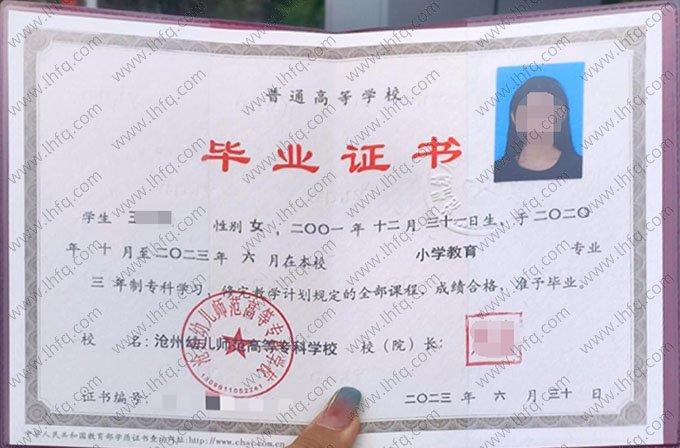 普通高等学校
毕业证书
学生 王 性别 女，二〇〇一年 十二月 三十一日生，于二〇二〇
年 十 月至二〇二三年 六 月在本校 小学教育 专业
三 年制专科学习，修完教学计划规定的全部课程，成绩合格，准予毕业。
校 名：沧州幼儿师范高等专科学校 校（院）长：
沧州幼儿师范高等专科学校
证书编号： 二〇二三 年 六 月 三十 日
中华人民共和国教育部学历证书查询网址:http://www.chsi.com.cn
www.lhfq.com